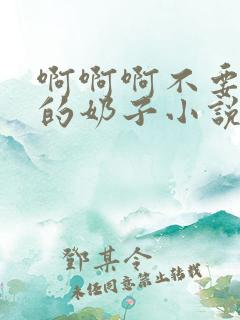 啊啊啊不要
的奶子小说
鄧某令
未经同意禁止转载